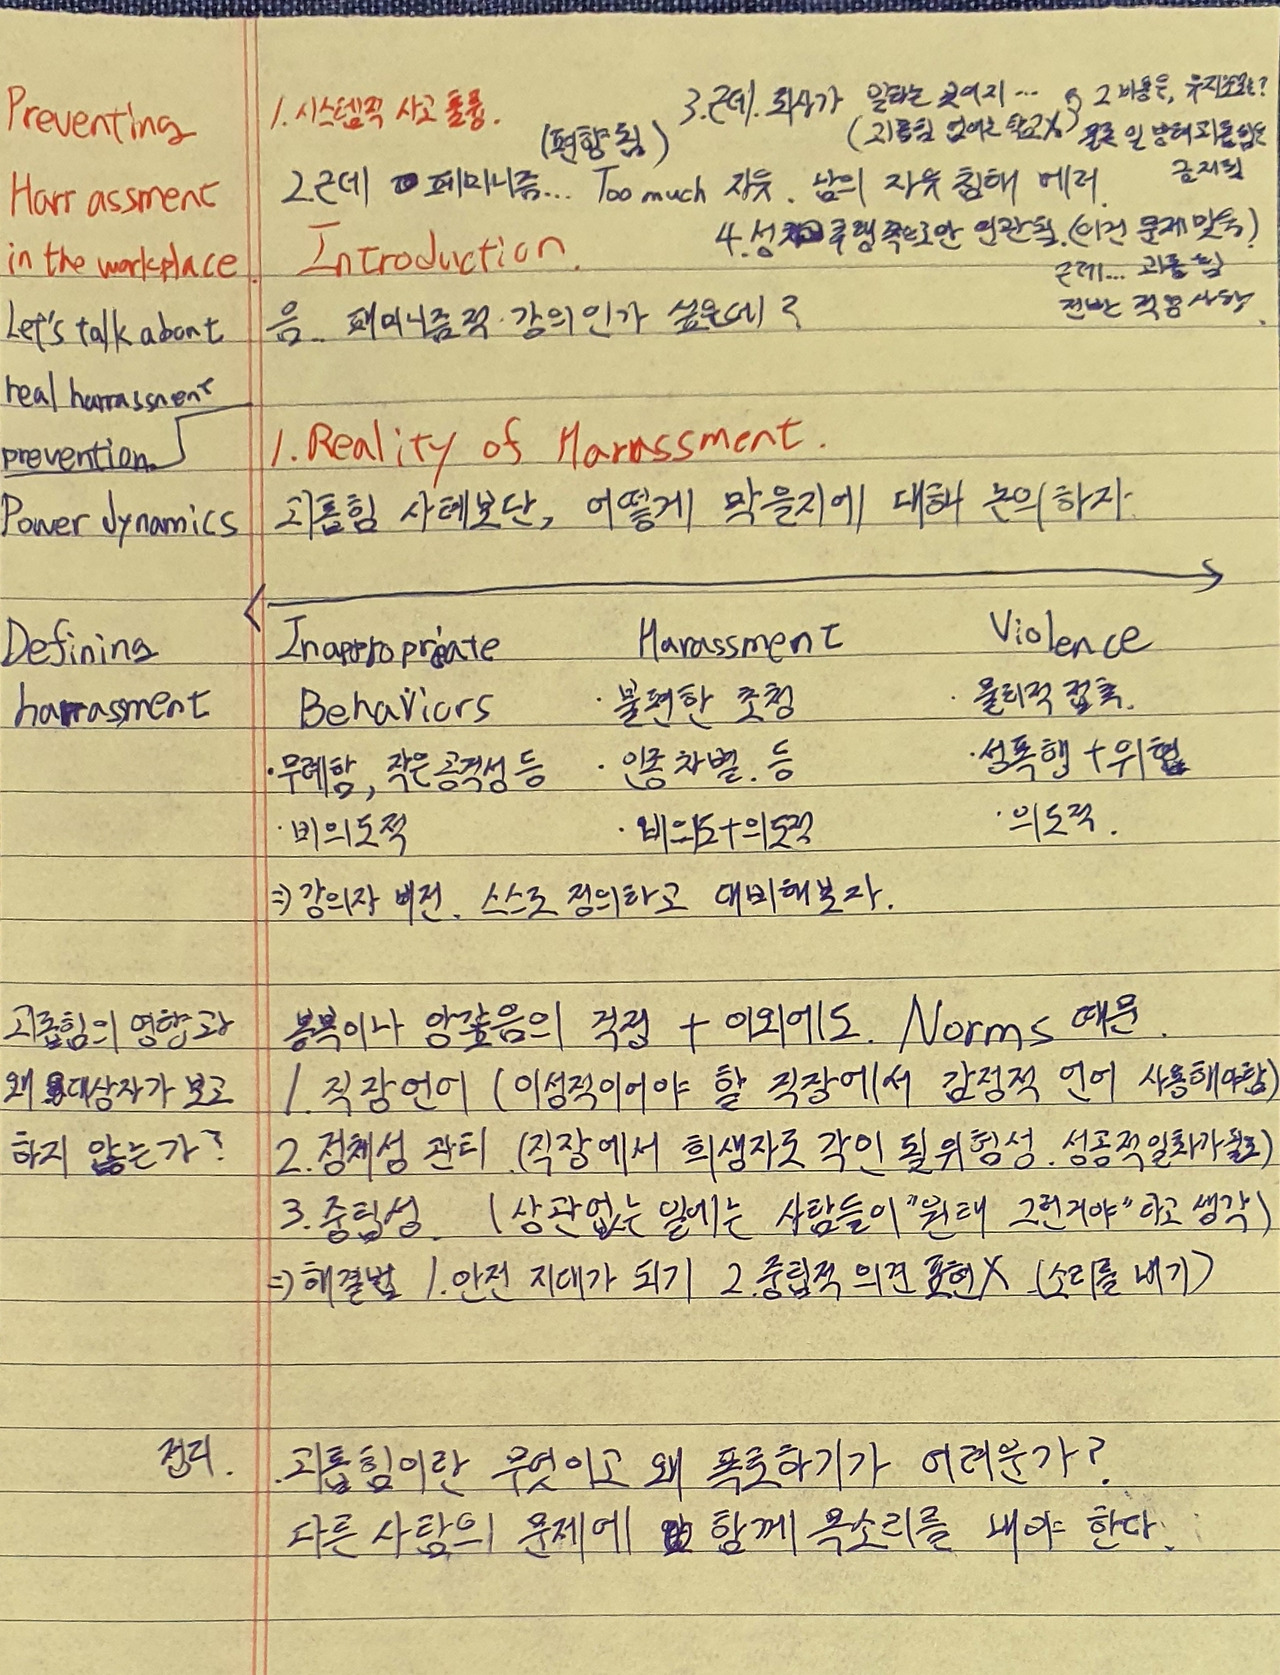 Preventing
Harrassment
in the workplace
Let's talk about
real harrassment
prevention.
Power dynamics
1. 시스템적 사고 훌륭.
(편향됨)
2. 근데 페미니즘... Too much 자유. 남의 자유 침해 에러.
3. 근데. 회사가 일하는 곳이지...
(괴롭힘 없애는 학교X)
그 비용은, 유지보수는?
물론 일 방해 괴롭힘은
금지됨
4. 성 쪽으로만 연관됨. (이건 문제 맞죠)
근데... 괴롭힘
전반 적용사항.
Introduction.
음.. 페미니즘적 강의인가 싶은데?
1. Reality of Harassment.
괴롭힘 사례보단, 어떻게 막을지에 대해 논의하자.
Defining
harrassment
Inappropriate
Behaviors
· 무례함, 작은 공격성 등
· 비의도적
Harassment
· 불편한 초청
· 인종차별. 등
· 비의도+의도적
Violence
· 물리적 접촉.
· 성폭행 + 위협
· 의도적.
⇒ 강의자 버전. 스스로 정의하고 대비해보자.
괴롭힘의 영향과
왜 대상자가 보고
하지 않는가?
봉복이나 앙갚음의 걱정 + 이외에도. Norms 때문.
1. 직장언어 (이성적이어야 할 직장에서 감정적 언어 사용해야함)
2. 정체성 관리 (직장에서 희생자로 각인 될 위험성. 성공적일화가 필요)
3. 중립성. (상관없는 일에는 사람들이 "원래 그런거야"라고 생각)
⇒ 해결법 1. 안전 지대가 되기 2. 중립적 의견 표현X (소리를 내기)
정리.
괴롭힘이란 무엇이고 왜 폭로하기가 어려운가?
다른 사람의 문제에 함께 목소리를 내야 한다.